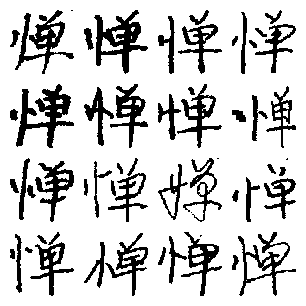 惮惮惮惮
惮惮惮惮
惮惮婵惮
惮惮惮惮